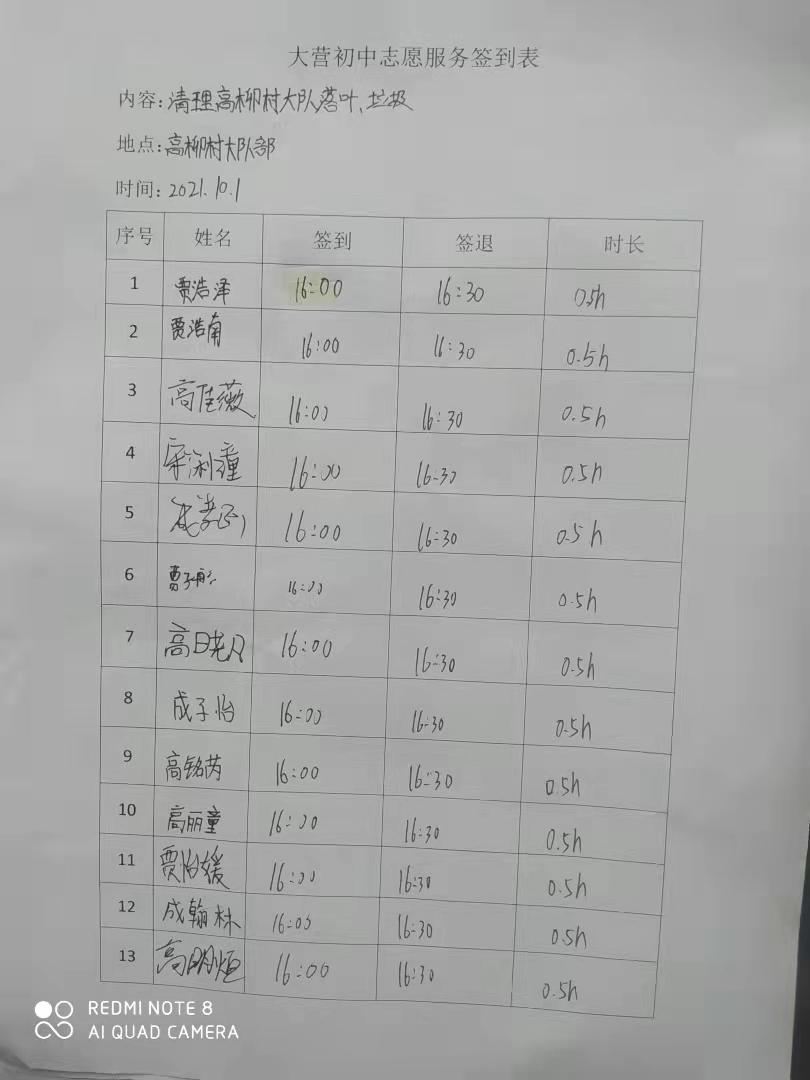 大营初中志愿服务签到表
内容:清理高柳村大队落叶、垃圾
地点:高柳村大队部
时间:2021.10.1
序号 姓名 签到 签退 时长
1 贾浩泽 16:00 16:30 0.5h
2 贾浩南 16:00 16:30 0.5h
3 高佳薇 16:00 16:30 0.5h
4 16:00 16:30 0.5h
5 16:00 16:30 0.5h
6 曹子彤 16:00 16:30 0.5h
7 高晓凡 16:00 16:30 0.5h
8 成子怡 16:00 16:30 0.5h
9 高铭芮 16:00 16:30 0.5h
10 高丽童 16:00 16:30 0.5h
11 贾怡媛 16:00 16:30 0.5h
12 成翰林 16:00 16:30 0.5h
13 高明烜 16:00 16:30 0.5h
REDMI NOTE 8
AI QUAD CAMERA